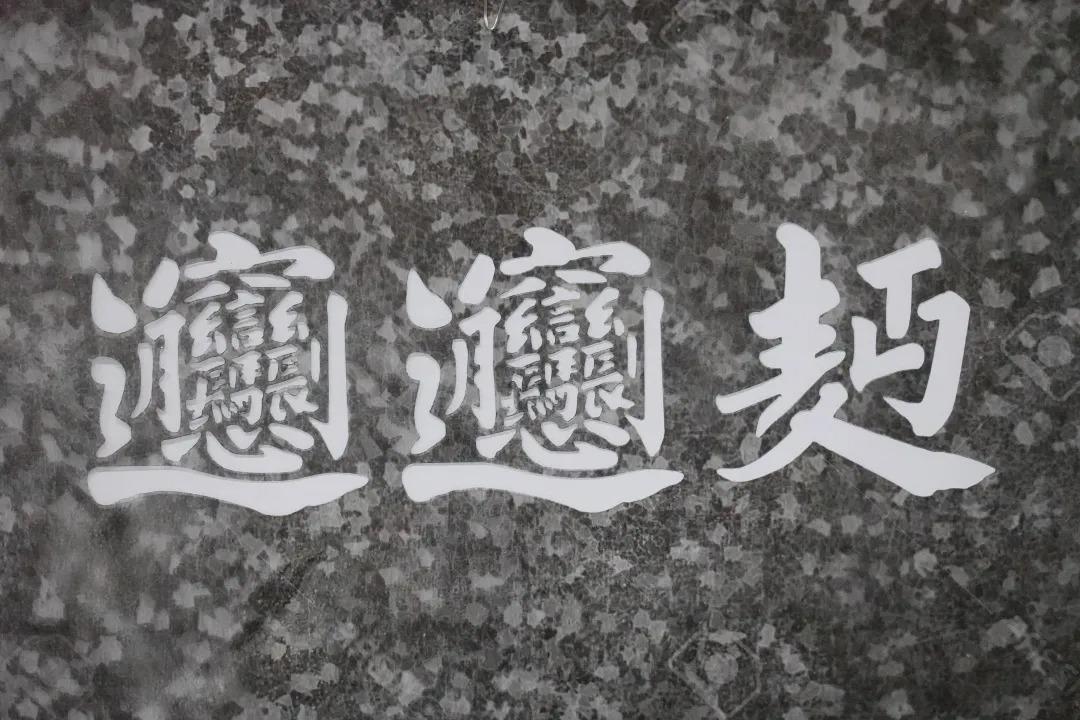 𰻞𰻞麪